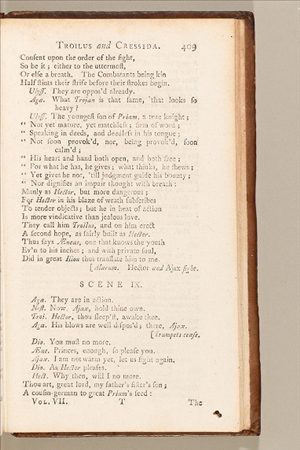 TROILUS and CRESSIDA. 409
Consent upon the order of the fight,
So be it; either to the uttermost,
Or else a breath. The Combatants being kin
Half stints their strife before their strokes begin.
Ulyss. They are oppos'd already.
Aga. What Trojan is that same, that looks so
heavy?
Ulyss. The youngest son of Priam, a true knight;
" Not yet mature, yet matchless; firm of word;
" Speaking in deeds, and deedless in his tongue;
" Not soon provok'd, nor, being provok'd, soon
calm'd;
" His heart and hand both open, and both free;
" For what he has, he gives; what thinks, he shews;
" Yet gives he not, 'till judgment guide his bounty;
" Nor dignifies an impair thought with breath:
Manly as Hector, but more dangerous;
For Hector in his blaze of wrath subscribes
To tender objects; but he in heat of action
Is more vindicative than jealous love.
They call him Troilus, and on him erect
A second hope, as fairly built as Hector.
Thus says Æneas, one that knows the youth
Ev'n to his inches; and with private soul,
Did in great Ilion thus translate him to me.
[Alarum. Hector and Ajax fight.
SCENE IX.
Aga. They are in action.
Nest. Now, Ajax, hold thine own.
Troi. Hector, thou sleep'st, awake thee.
Aga. His blows are well dispos'd; there, Ajax.
[trumpets cease.
Dio. You must no more.
Æne. Princes, enough, so please you.
Ajax. I am not warm yet, let us fight again.
Dio. As Hector pleases.
Hect. Why then, will I no more.
Thou art, great lord, my father's sister's son;
A cousin-german to great Priam's seed:
VOL. VII. T The